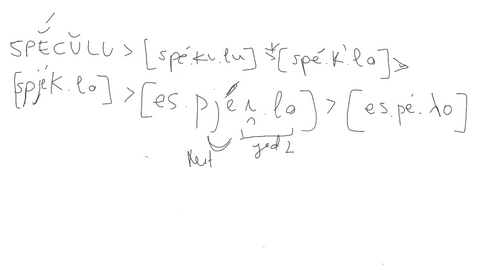 SPĔ́CŬLU > [spé.ku.lu] > [spé.k'.lo] >
[spjék.lo] > [es.pjéi̯.lo] > [es.pé.λo]
yod 2